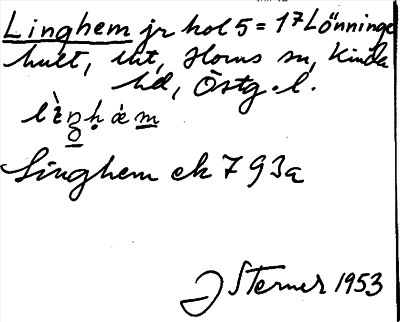 Linghem jr kol 5 = 17 Lönninge
hult, tht, Horns sn, Kinda
hd, Östg. l.
Linghem ek 7 93a
J Sterner 1953